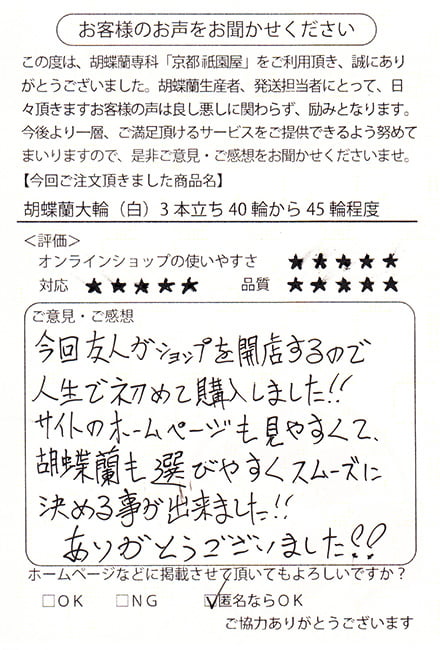 お客様のお声をお聞かせください
この度は、胡蝶蘭専科「京都祇園屋」をご利用頂き、誠にあり
がとうございました。胡蝶蘭生産者、発送担当者にとって、日
々頂きますお客様の声は良し悪しに関わらず、励みとなります。
今後より一層、ご満足頂けるサービスをご提供できるよう努めて
まいりますので、是非ご意見・ご感想をお聞かせくださいませ。
【今回ご注文頂きました商品名】
胡蝶蘭大輪（白）3本立ち40輪から45輪程度
＜評価＞
オンラインショップの使いやすさ ★★★★★
対応 ★★★★★ 品質 ★★★★★
ご意見・ご感想
今回友人がショップを開店するので
人生で初めて購入しました!!
サイトのホームページも見やすくて、
胡蝶蘭も選びやすくスムーズに
決める事が出来ました!!
ありがとうございました!!
ホームページなどに掲載させて頂いてもよろしいですか？
□OK □NG ☑匿名ならOK
ご協力ありがとうございます